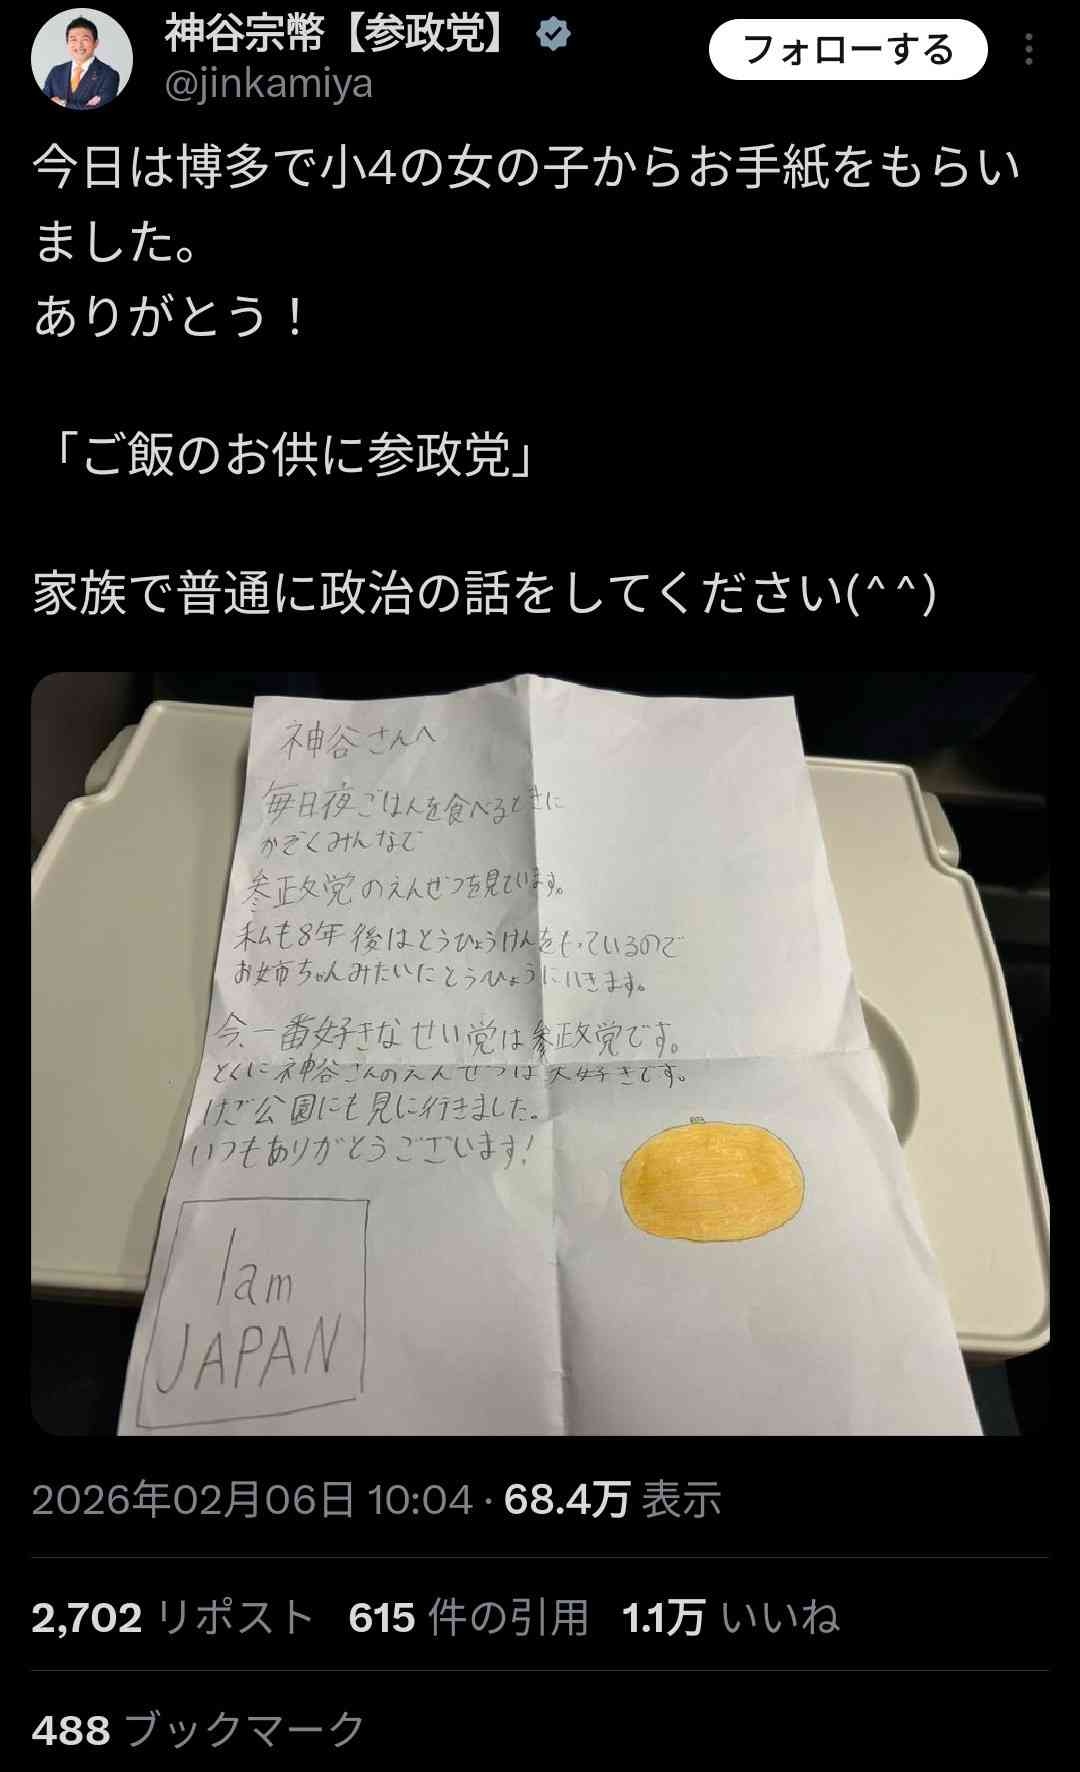 神谷宗幣【参政党】
@jinkamiya
フォローする
今日は博多で小4の女の子からお手紙をもらい
ました。
ありがとう！
「ご飯のお供に参政党」
家族で普通に政治の話をしてください(^^)
神谷さんへ
毎日夜ごはんを食べるときに
かぞくみんなで
参政党のえんぜつを見ています。
私も8年後はとうひょうけんをもっているので
お姉ちゃんみたいにとうひょうにいきます。
今、一番好きなせい党は参政党です。
とくに神谷さんのえんぜつは大好きです。
けご公園にも見に行きました。
いつもありがとうございます!
I am
JAPAN
2026年02月06日 10:04 · 68.4万 表示
2,702 リポスト 615 件の引用 1.1万 いいね
488 ブックマーク